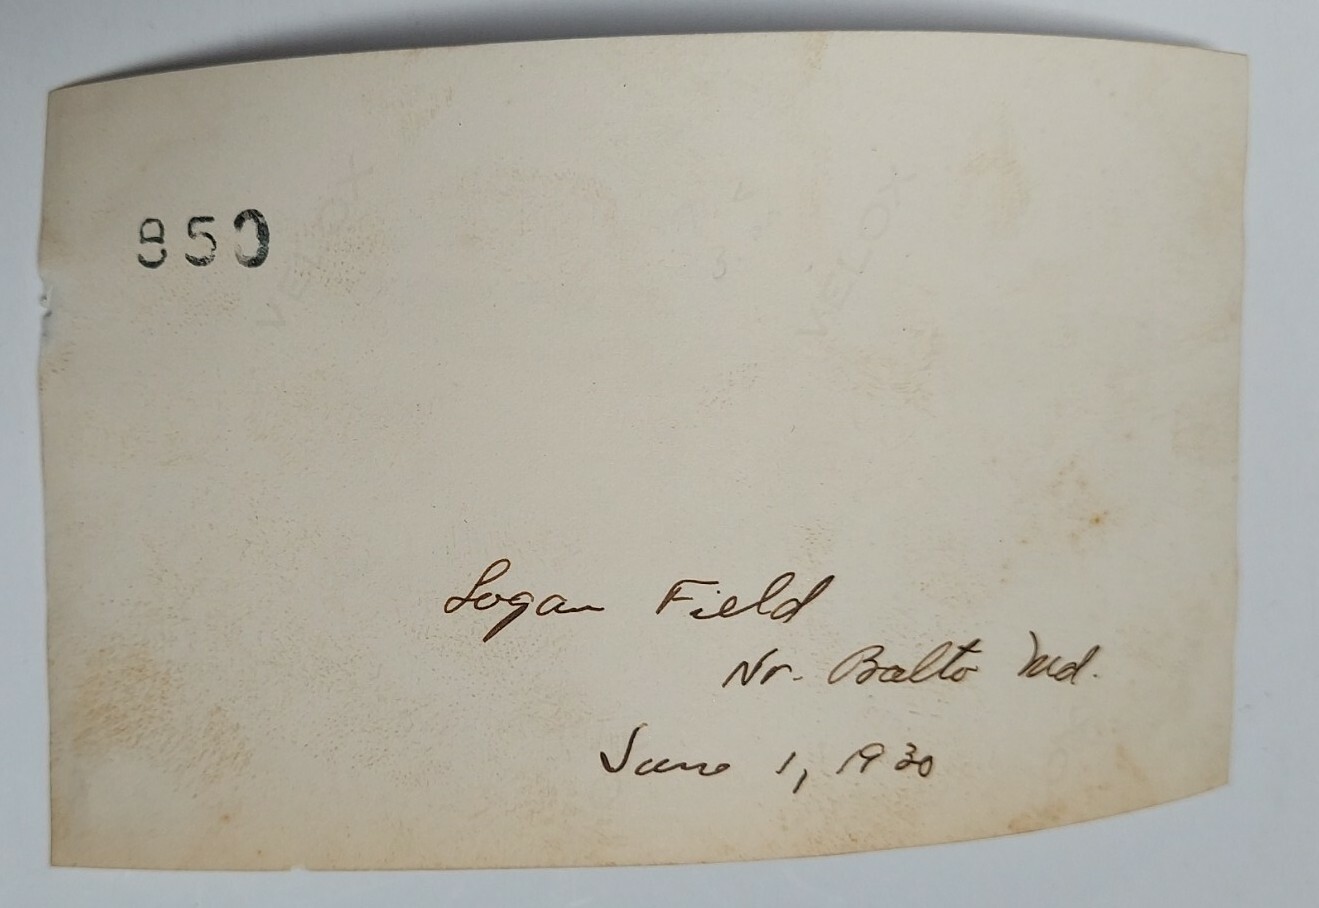 850
VELOX
VELOX
3
Logan Field
Nr. Balto Md.
June 1, 1930